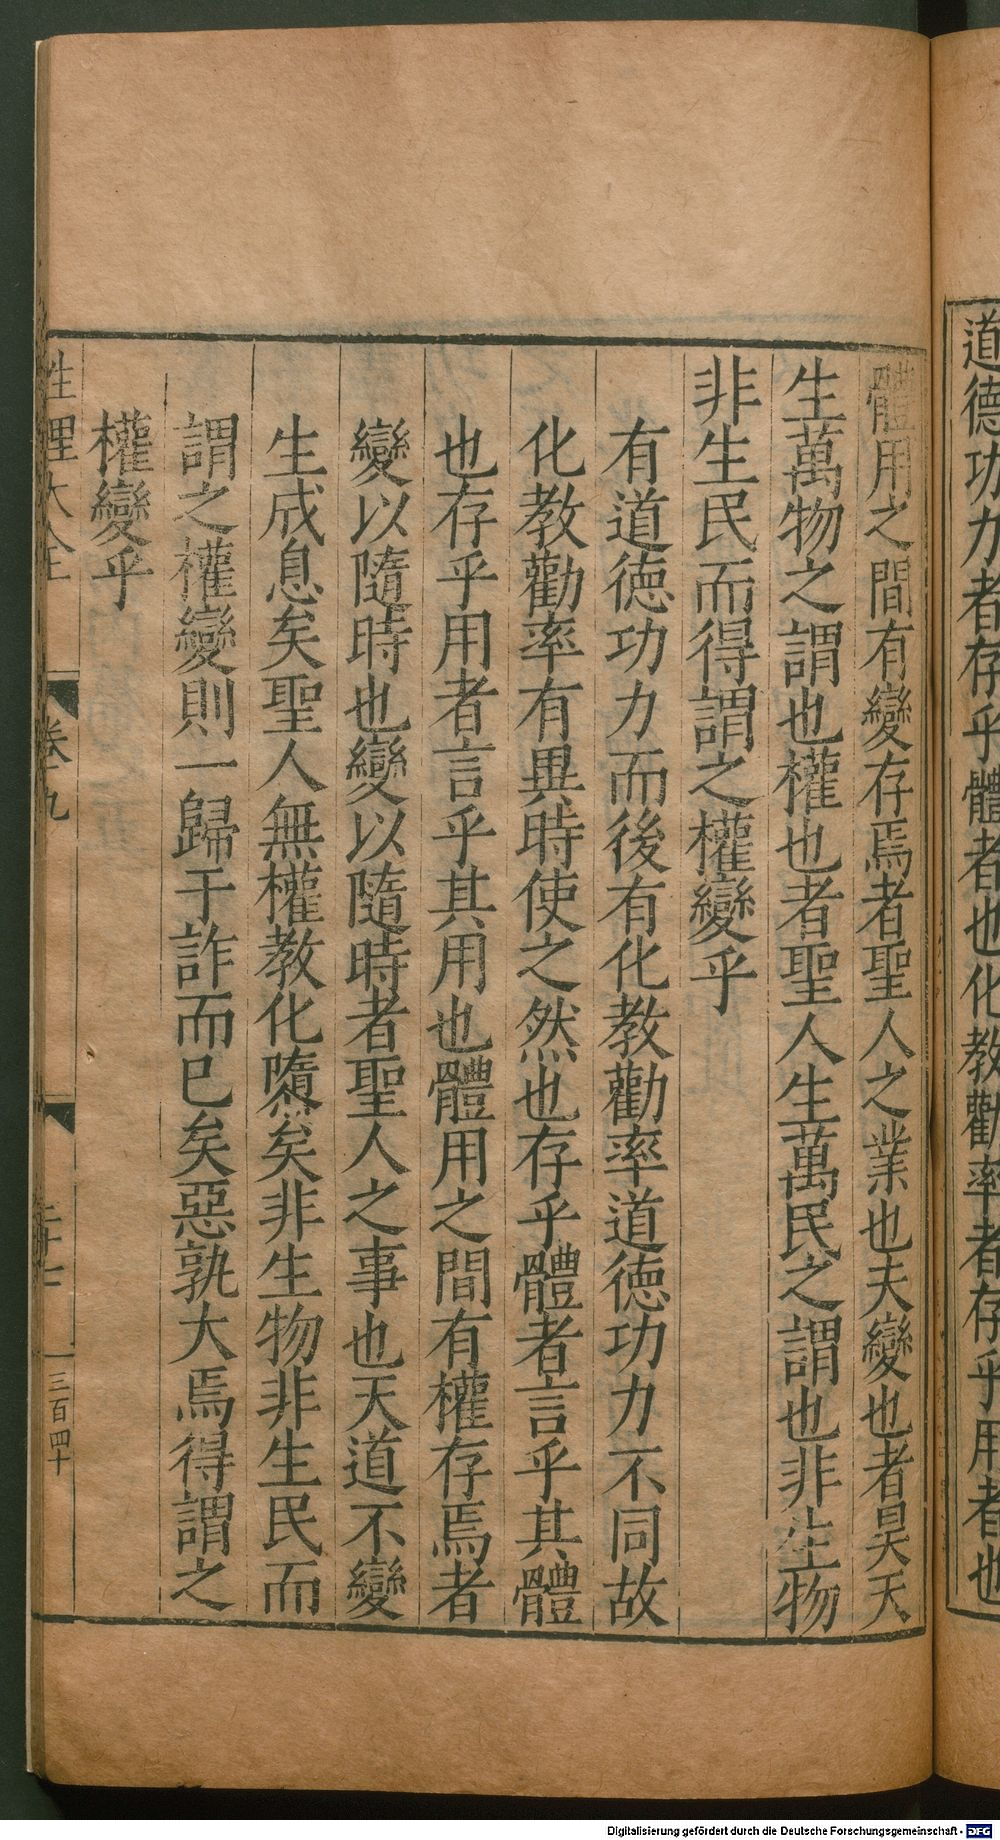 道德功力者存乎體者也化教勸率者存乎用者也
體用之間有變存焉者聖人之業也夫變也者昊天
生萬物之謂也權也者聖人生萬民之謂也非生物
非生民而得謂之權變乎
有道德功力而後有化教勸率道德功力不同故
化教勸率有異時使之然也存乎體者言乎其體
也存乎用者言乎其用也體用之間有權存焉者
變以隨時也變以隨時者聖人之事也天道不變
生成息矣聖人無權教化隳矣非生物非生民而
謂之權變則一歸于詐而已矣惡孰大焉得謂之
權變乎
性理大全 卷九 二十七 三百四十
Digitalisierung gefördert durch die Deutsche Forschungsgemeinschaft - DFG